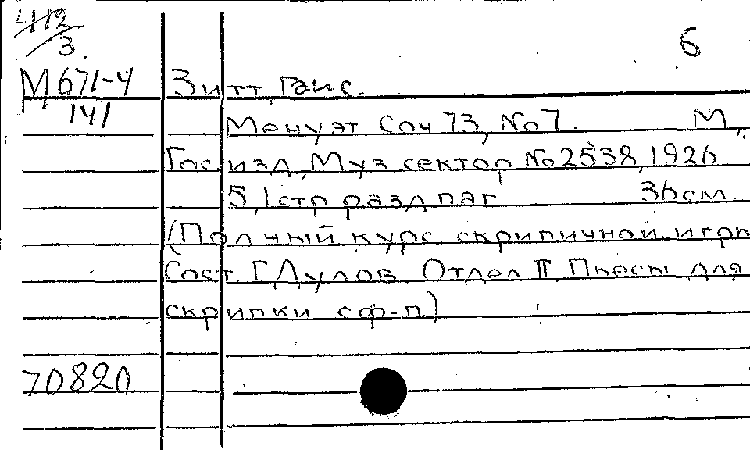 412/3.
6
М 671-4 Зитт, Ганс.
141
Менуэт Соч 73, No 7. М,
Гос изд, Муз сектор No 2538, 1926
5, 1 стр разд паг 36 см
(Полный курс скрипичной игры
Сост Г Дулов. Отдел II Пьесы для
скрипки с ф-п)
70820